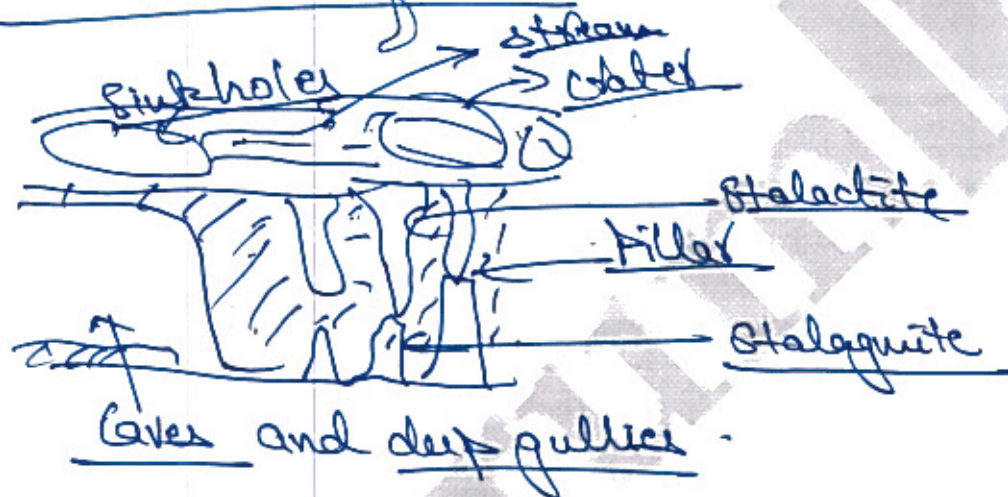 stream
Sinkholes
Crater
Stalactite
Pillar
Stalagmite
Caves and deep gullies.